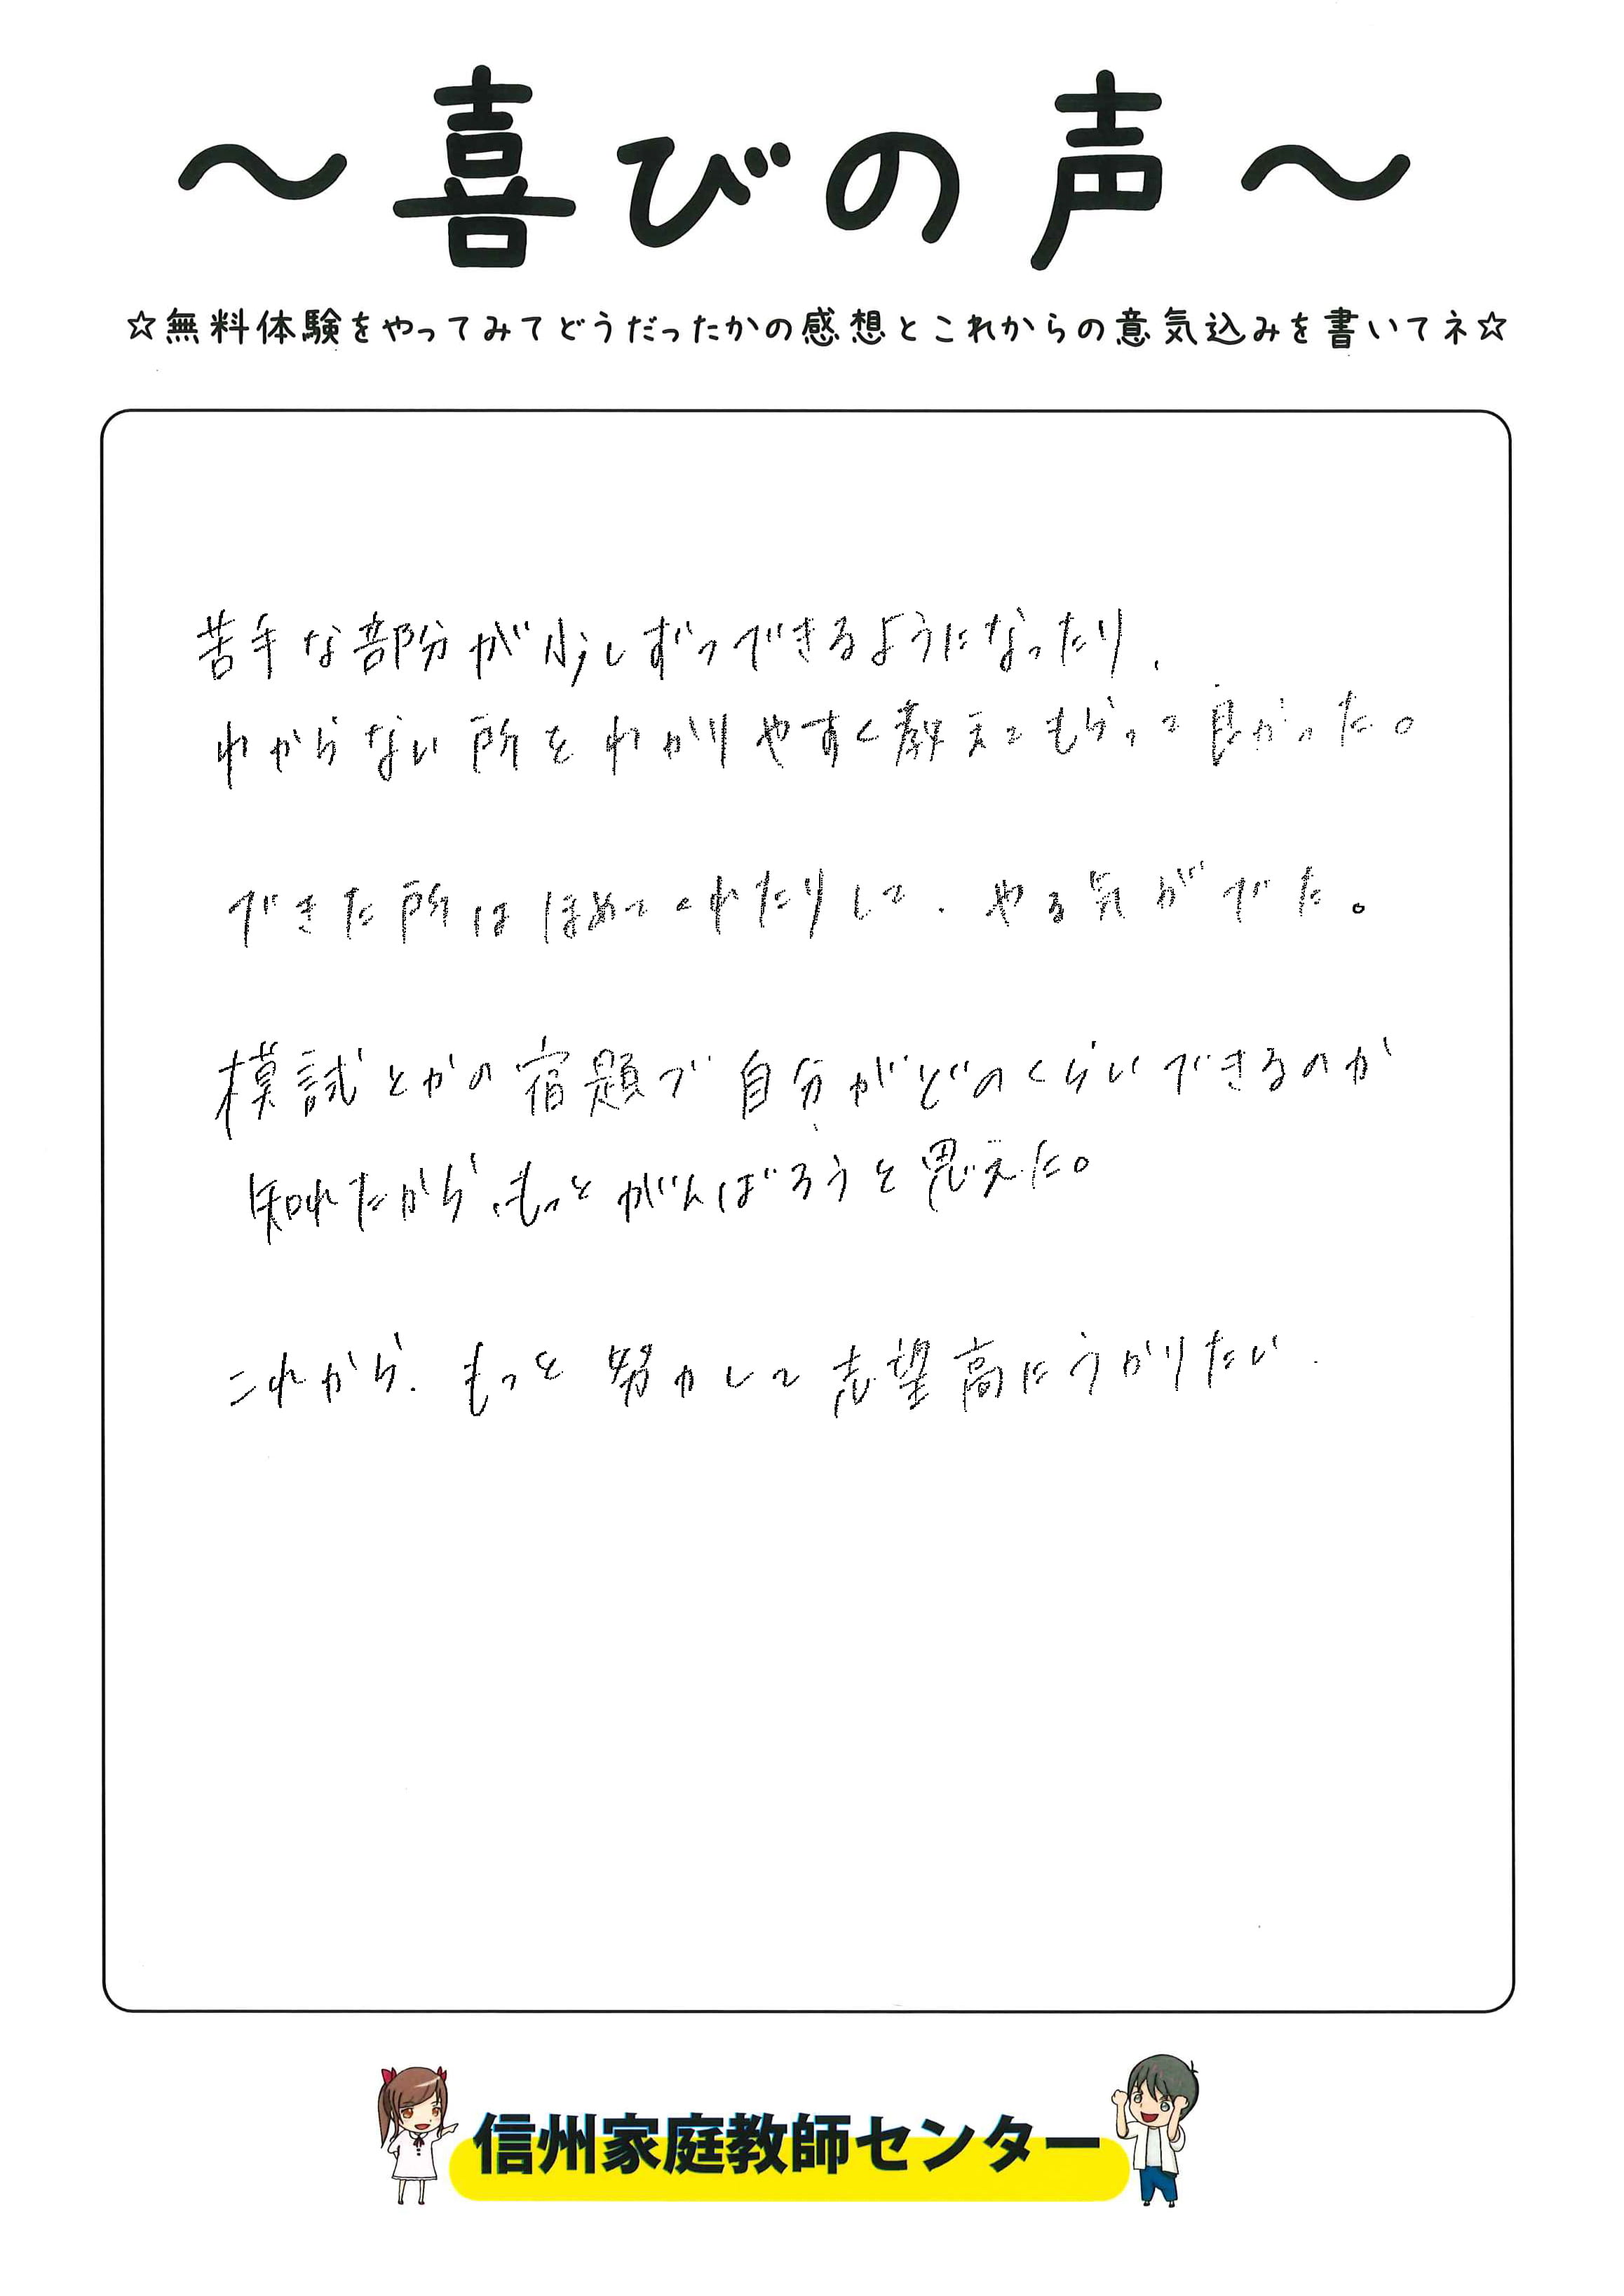 ～喜びの声～
☆無料体験をやってみてどうだったかの感想とこれからの意気込みを書いてネ☆
苦手な部分が少しずつできるようになったり、
わからない所をわかりやすく教えてもらって良かった。
できた所はほめてくれたりして、やる気がでた。
模試とかの宿題で自分がどのくらいできるのか
知れたから、もっとがんばろうと思えた。
これから、もっと努力して志望高にうかりたい.
信州家庭教師センター